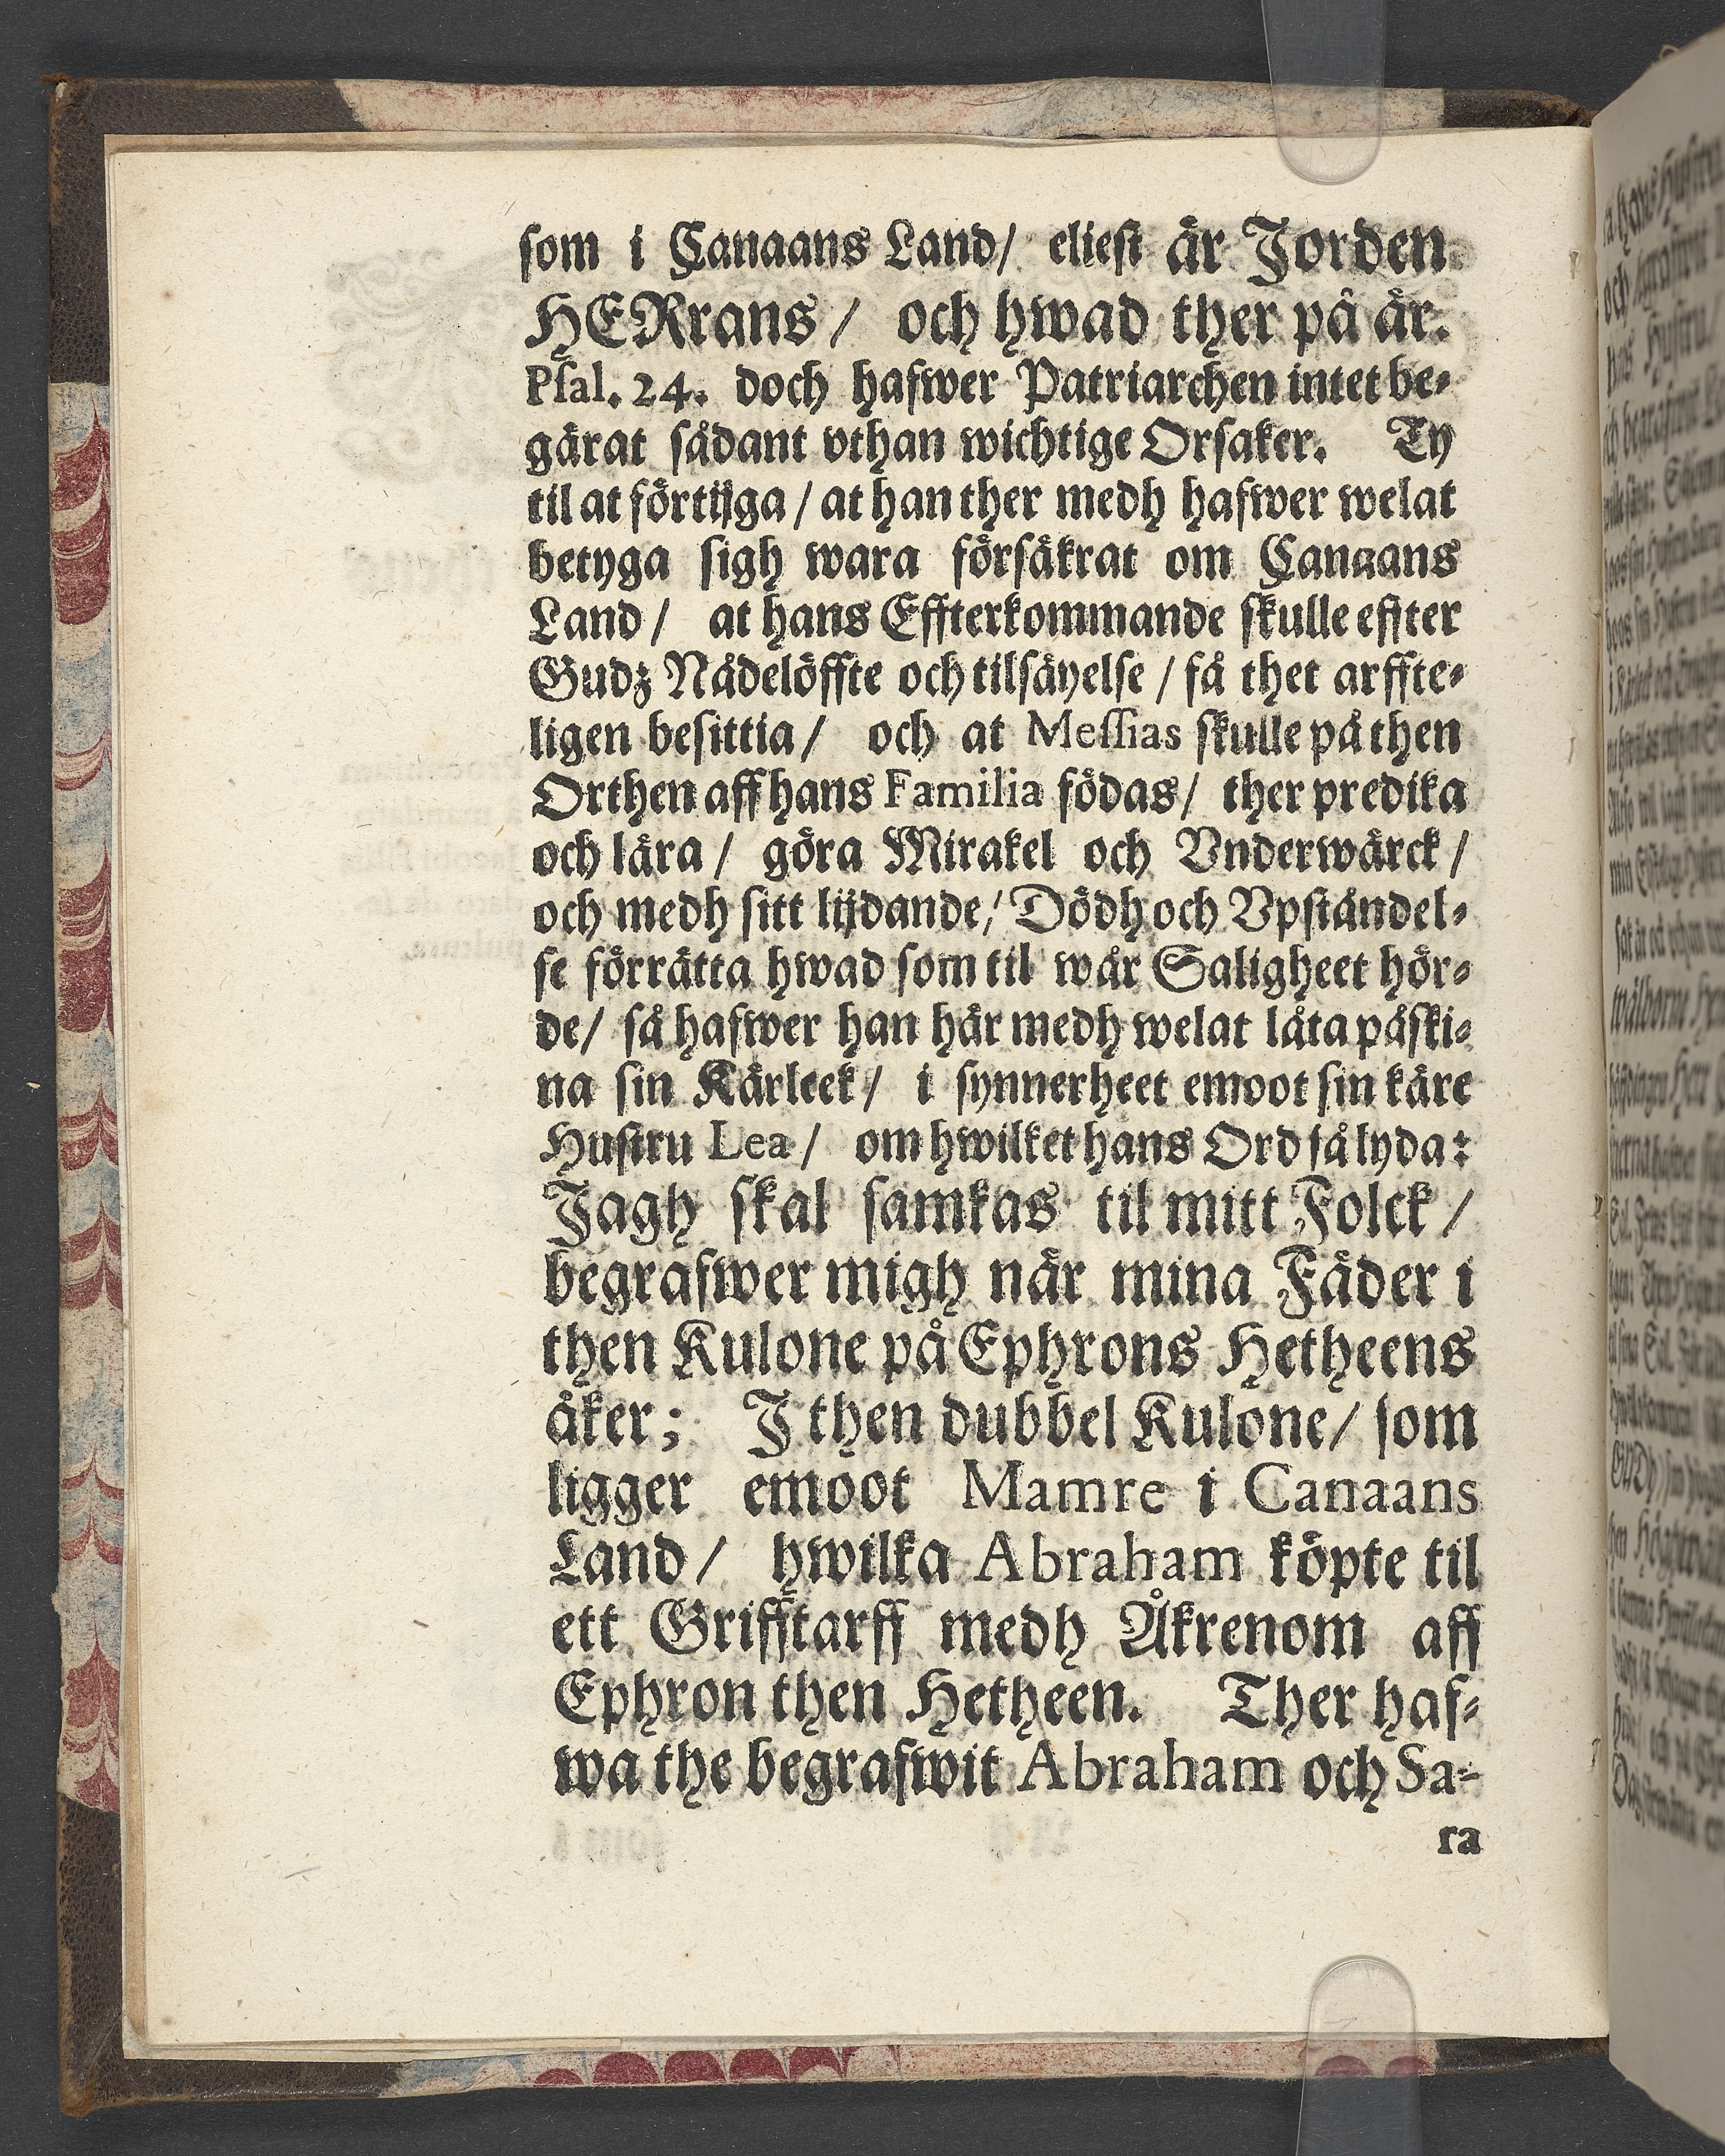 som i Canaans Land/ eliest är Jorden
HERrans/ och hwad ther på är.
Psal. 24. doch hafwer Patriarchen intet be-
gärat sådant vthan wichtige Orsaker. Ty
til at förtijga/ at han ther medh hafwer welat
betyga sigh wara försäkrat om Canaans
Land/ at hans Effterkommande skulle effter
Gudz Nådelöffte och tilsäyelse/ få thet arffte-
ligen besittia/ och at Messias skulle på then
Orthen aff hans Familia födas/ ther predika
och lära/ göra Mirakel och Vnderwärck/
och medh sitt lijdande/ Dödh och Vpståndel-
se förrätta hwad som til wår Saligheet hör-
de/ så hafwer han här medh welat låta påski-
na sin Kärleek/ i synnerheet emoot sin käre
Hustru Lea/ om hwilket hans Ord så lyda:
Jagh skal samkas til mitt Folck/
begrafwer migh när mina Fäder i
then Kulone på Ephrons Hetheens
åker; J then dubbel Kulone/ som
ligger emoot Mamre i Canaans
Land/ hwilka Abraham köpte til
ett Grifftarff medh Åkrenom aff
Ephron then Hetheen. Ther haf-
wa the begrafwit Abraham och Sa-
ra